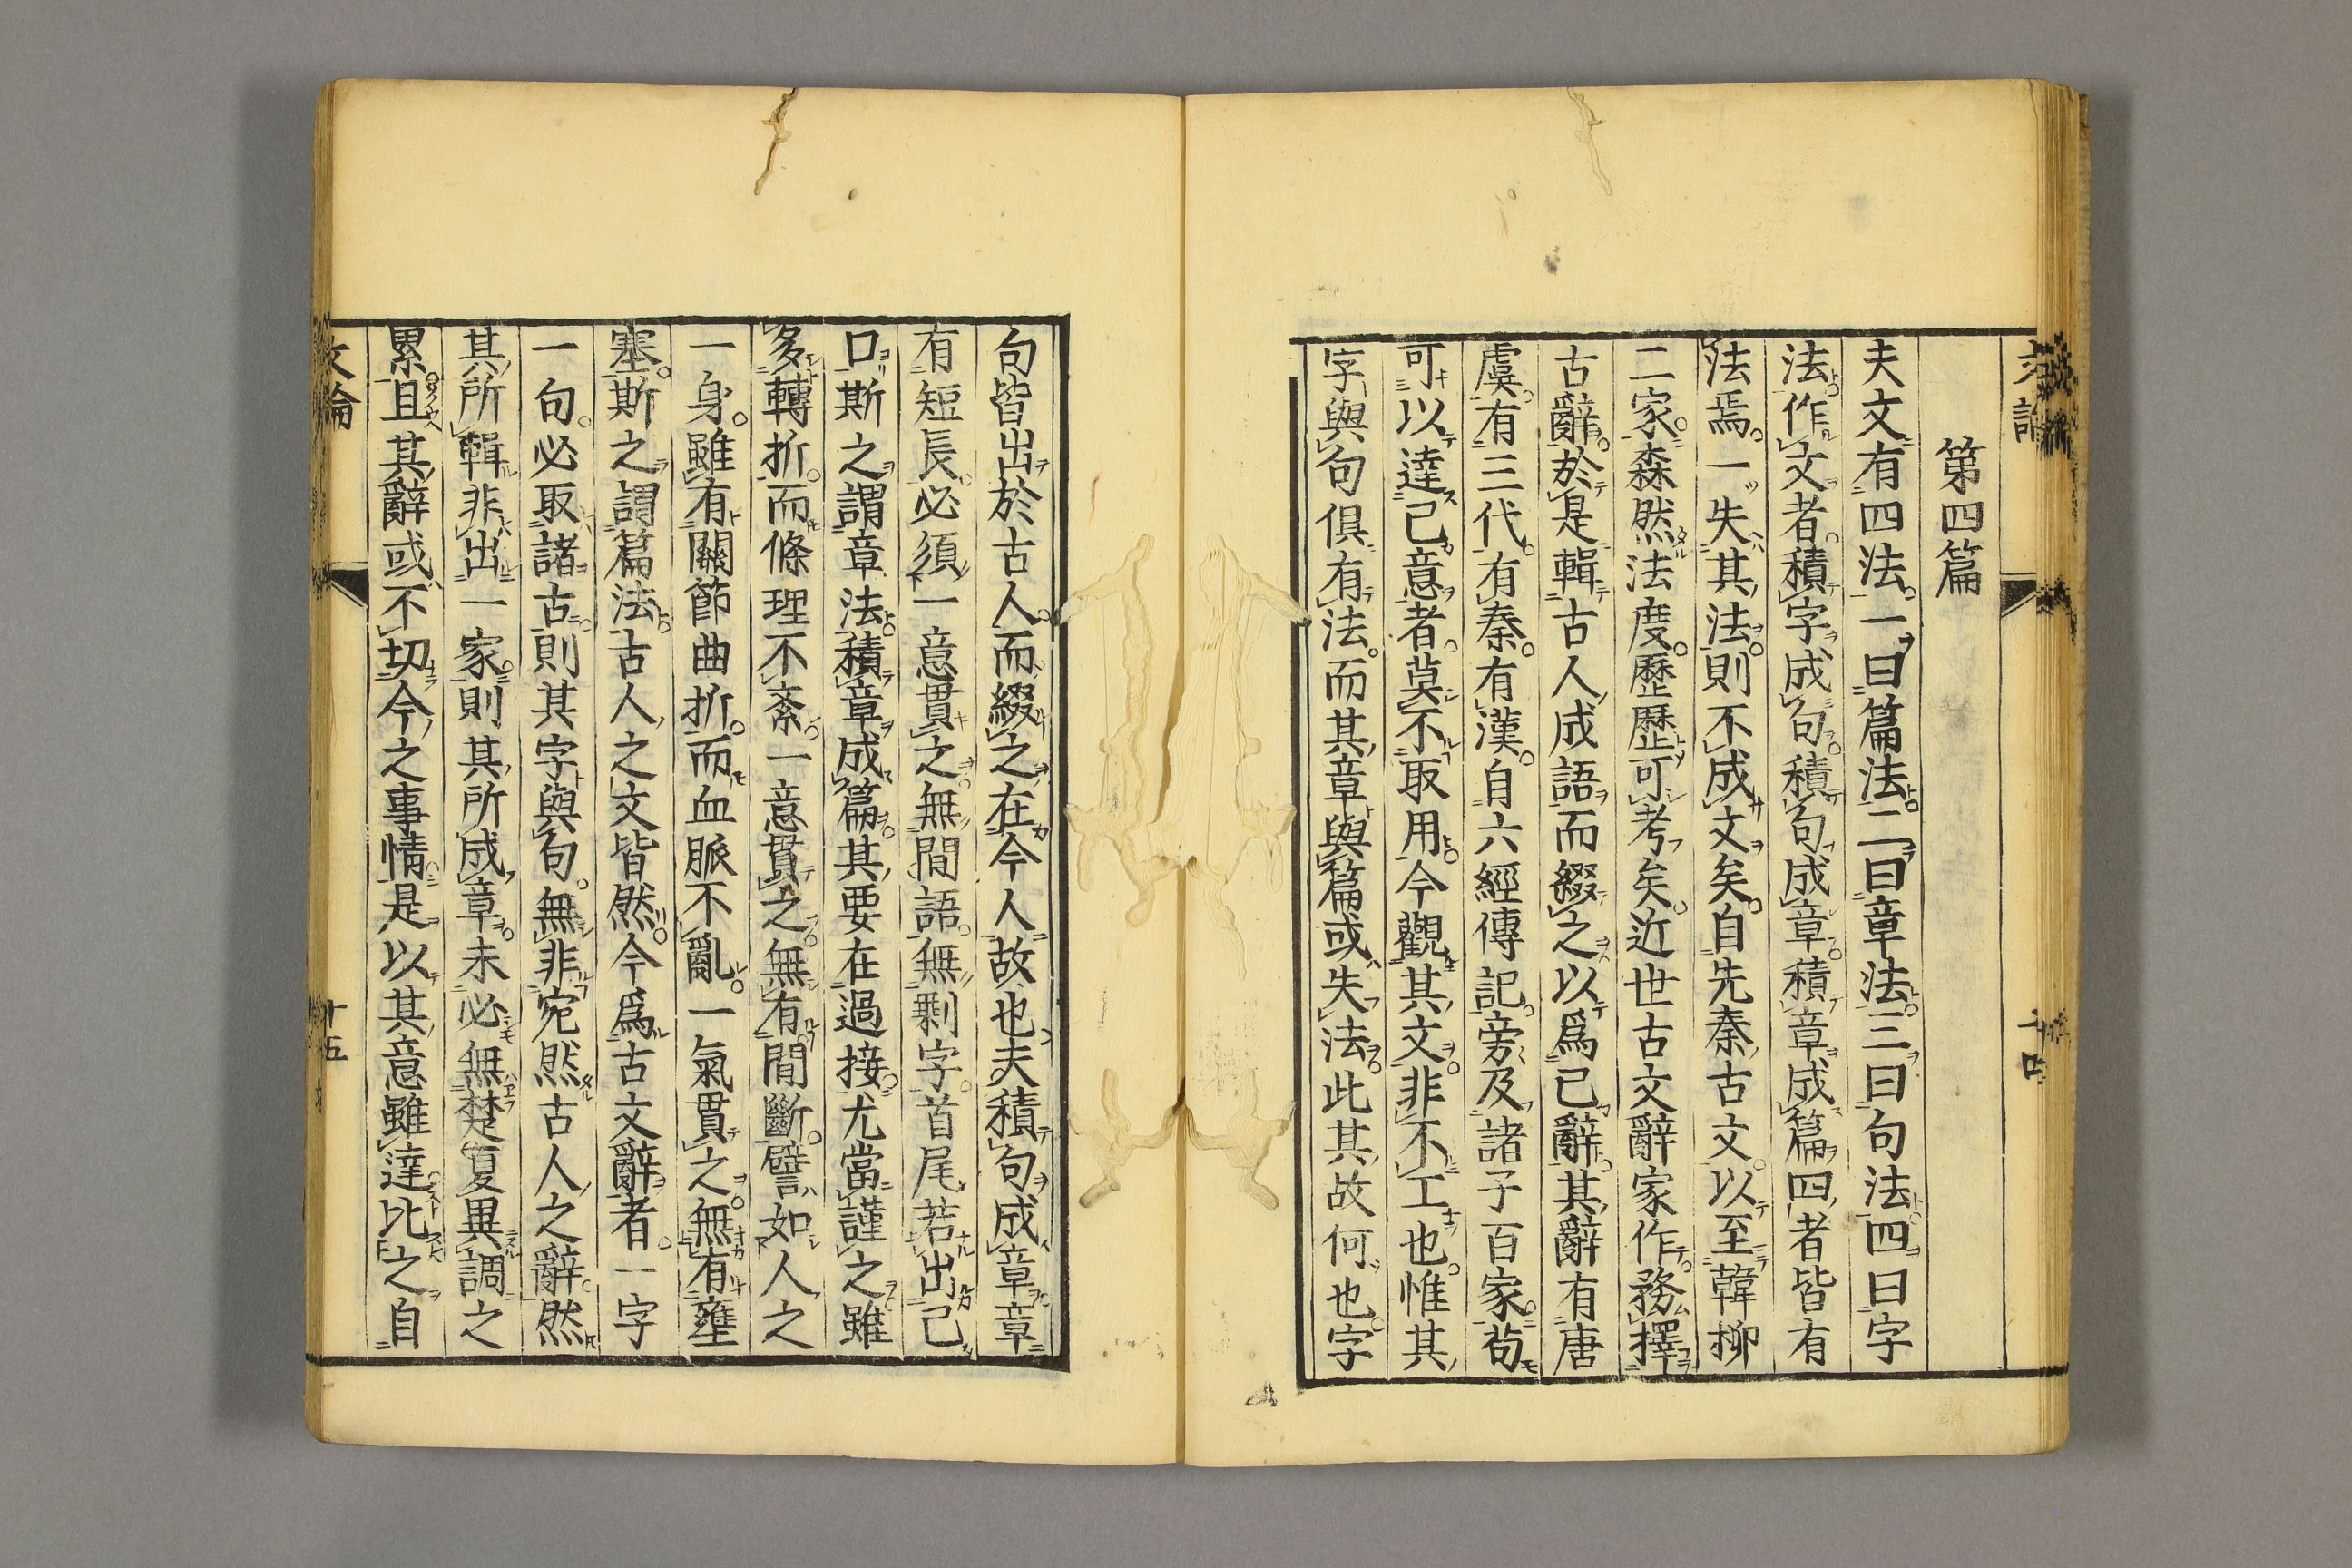 第四篇
夫文有四法。一曰篇法。二曰章法。三曰句法。四曰字
法。作文者。積字成句。積句成章。積章成篇。四者皆有
法焉。一失其法。則不成文矣。自先秦古文。以至韓柳
二家。森然法度。歷歷可考矣。近世古文辭家作。務擇
古辭。於是輯古人成語而綴之。以爲己辭。其辭有唐
虞。有三代。有秦。有漢。自六經傳記。旁及諸子百家。苟
可以達己意者。莫不取用。今觀其文。非不工也。惟其
字與句俱有法。而其章與篇或失法。此其故何也。字
句皆出於古人。而綴之在今人故也。夫積句成章。章
有短長。必須一意貫之。無間語。無剩字。首尾若出己
口。斯之謂章法。積章成篇。其要在過接。尤當謹之。雖
多轉折。而條理不紊。一意貫之。無有間斷。譬如人之
一身。雖有關節曲折。而血脈不亂。一氣貫之。無有壅
塞。斯之謂篇法。古人之文皆然。今爲古文辭者。一字
一句。必取諸古。則其字與句。無非宛然古人之辭。然
其所輯非出一家。則其所成章。未必無楚夏異調之
累。且其辭或不切今之事情。是以其意雖達。比之自
文論
十五